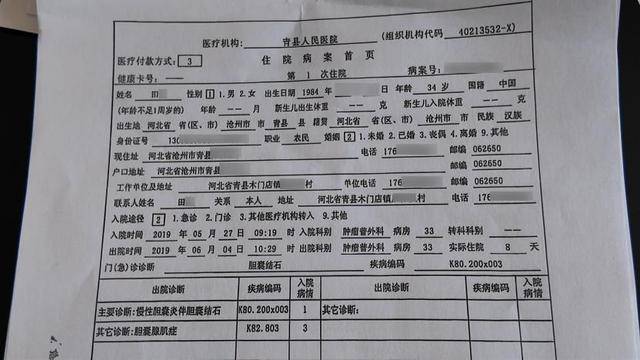 医疗机构: 青县人民医院 (组织机构代码 40213532-X)
医疗付款方式: 3 住院病案首页
健康卡号: —— 第 1 次住院 病案号:
姓名 田 性别 1 1.男 2.女 出生日期 1984 年龄 34 岁 国籍 中国
(年龄不足1周岁的) 年龄 —— 月 新生儿出生体重 —— 克 新生儿入院体重 —— 克
出生地 河北省 省(区、市) 沧州市 市 青县 县 籍贯 河北省 省(区、市) 沧州市 市 民族 汉族
身份证号 130 职业 农民 婚姻 2 1.未婚 2.已婚 3.丧偶 4.离婚 9.其他
现住址 河北省沧州市青县 电话 176 邮编 062650
户口地址 河北省沧州市青县 邮编 062650
工作单位及地址 河北省青县木门店镇 村 单位电话 176 邮编 062650
联系人姓名 田 关系 本人 地址 河北省青县木门店镇 村 电话 176
入院途径 2 1.急诊 2.门诊 3.其他医疗机构转入 9.其他
入院时间 2019 年 05 月 27 日 09:19 时 入院科别 肿瘤普外科 病房 33 转科科别 ——
出院时间 2019 年 06 月 04 日 10:29 时 出院科别 肿瘤普外科 病房 33 实际住院 8 天
门(急)诊诊断 胆囊结石 疾病编码 K80.200x003
出院诊断 疾病编码 入院病情 出院诊断 疾病编码 入院病情
主要诊断: 慢性胆囊炎伴胆囊结石 K80.200x003 1 其它诊断:
其它诊断: 胆囊腺肌症 K82.803 3